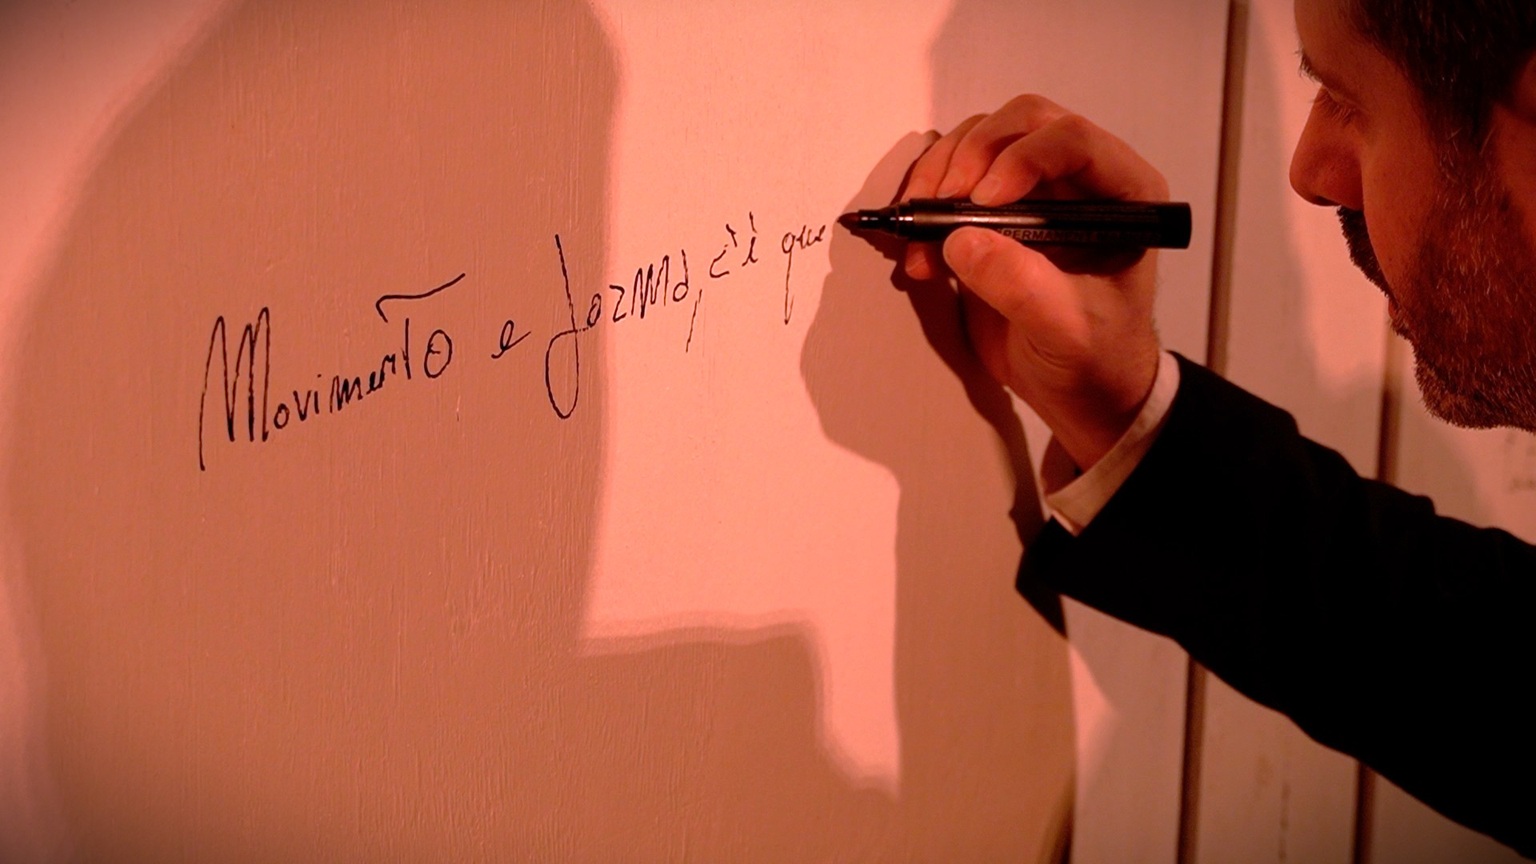 Movimento e forma, c'è que
PERMANENT